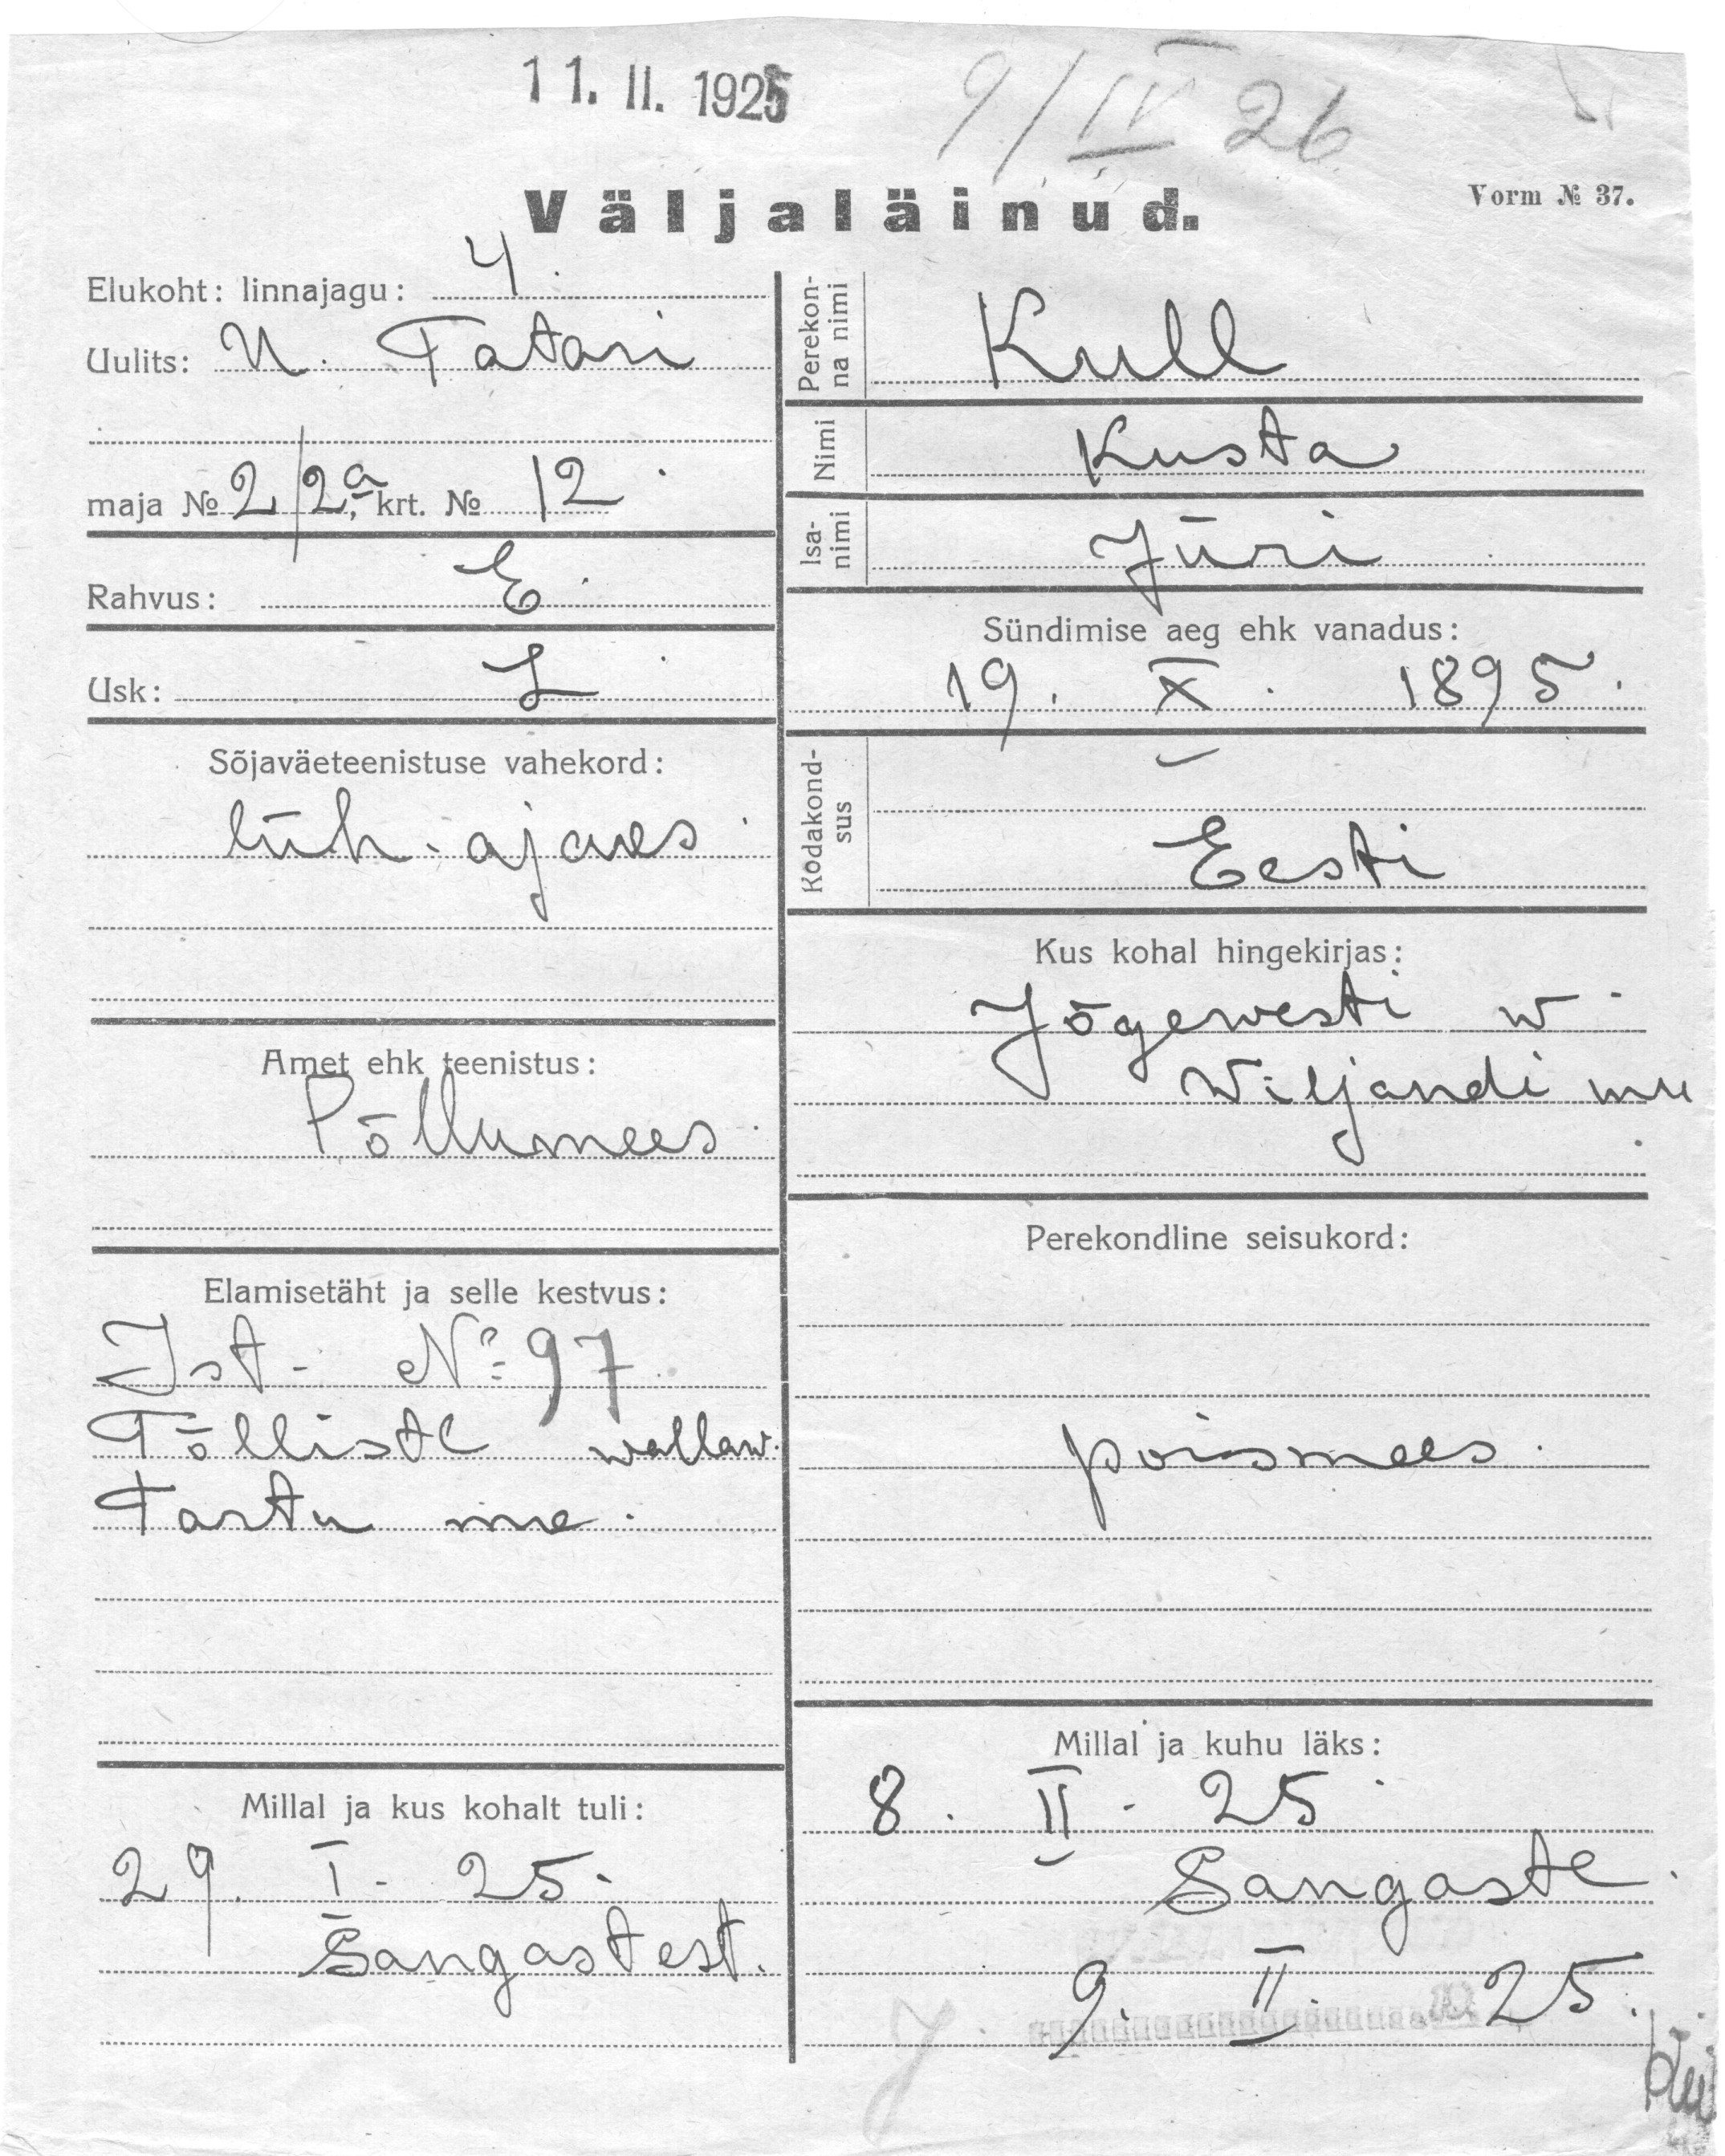 11. II. 1925
9/IV 26
Väljaläinud.
Vorm № 37.
Elukoht: linnajagu: 4.
Uulits: U. Tatari
maja № 2/2a, krt. № 12.
Rahvus: E.
Usk: L.
Sõjaväeteenistuse vahekord:
lüh. ajaks.
Amet ehk teenistus:
Põllumees.
Elamisetäht ja selle kestvus:
Ist. № 97
Tõlliste wallaw.
Tartu
Millal ja kus kohalt tuli:
29. I. 25.
Sangastest.
Perekonna nimi
Kull
Nimi
Kusta
Isanimi
Jüri
Sündimise aeg ehk vanadus:
19. X. 1895.
Kodakondsus
Eesti
Kus kohal hingekirjas:
Jõgewesti w.
Wiljandi
Perekondline seisukord:
poismees.
Millal ja kuhu läks:
8. II. 25.
Sangaste.
9. II. 25.